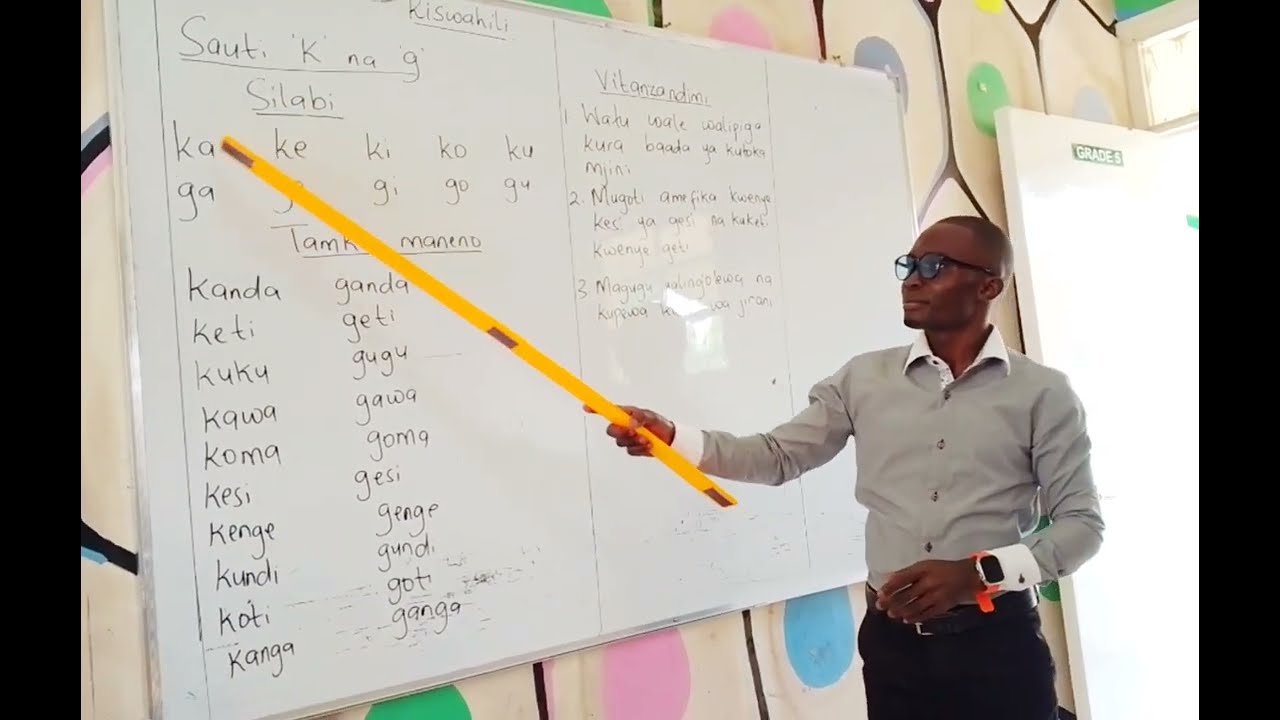 Kiswahili
Sauti 'K' na 'g'
Silabi
ka ke ki ko ku
ga gi go gu
maneno
kanda ganda
keti geti
kuku gugu
kawa gawa
koma goma
kesi gesi
kenge genge
kundi gundi
koti goti
kanga ganga
Vitanzandimi
1 Watu wale walipiga
kura baada ya kutoka
mjini
2. Mugoti amefika kwenye
kesi ya gesi na kuketi
kwenye geti
3 Magugu yalingolewa na
kupewa jirani
GRADE 5